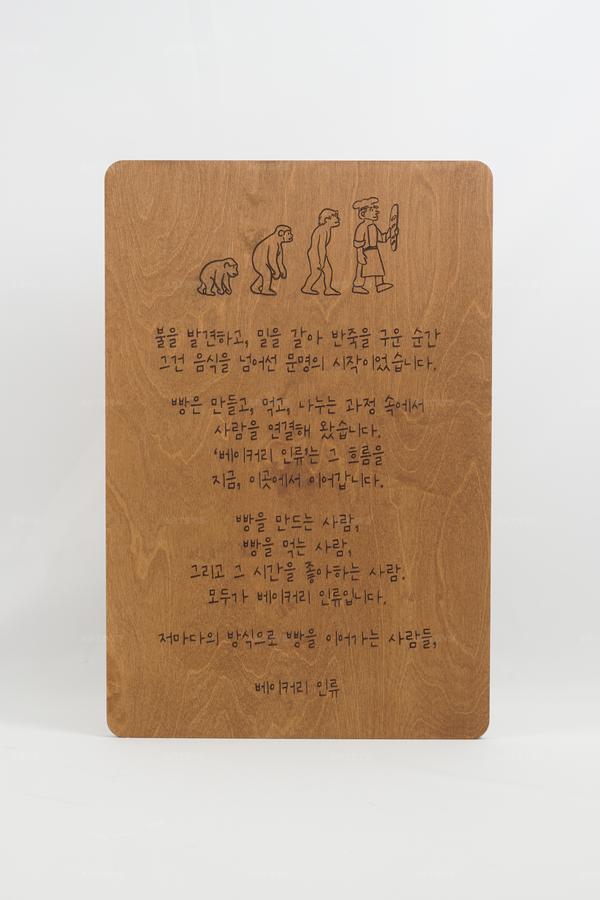 불을 발견하고, 밀을 갈아 반죽을 구운 순간
그건 음식을 넘어선 문명의 시작이었습니다.
빵은 만들고, 먹고, 나누는 과정 속에서
사람을 연결해 왔습니다.
'베이커리 인류'는 그 흐름을
지금, 이곳에서 이어갑니다.
빵을 만드는 사람,
빵을 먹는 사람,
그리고 그 시간을 좋아하는 사람.
모두가 베이커리 인류입니다.
저마다의 방식으로 빵을 이어가는 사람들,
베이커리 인류